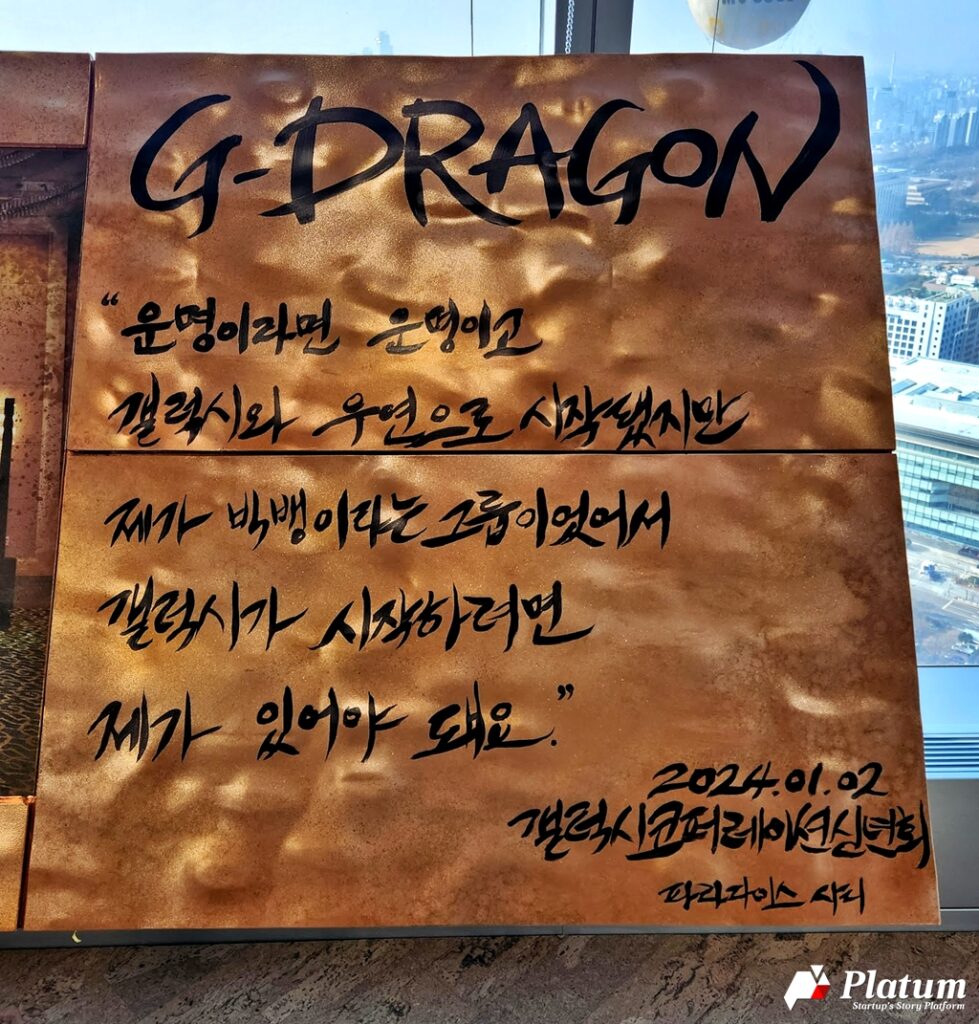 G-DRAGON
“운명이라면 운명이고
갤럭시와 우연으로 시작됐지만
제가 빅뱅이라는 그룹이었어서
갤럭시가 시작하려면
제가 있어야 돼요.”
2024.01.02
갤럭시코퍼레이션신년회
파라다이스 시티
Platum
Startup's Story Platform